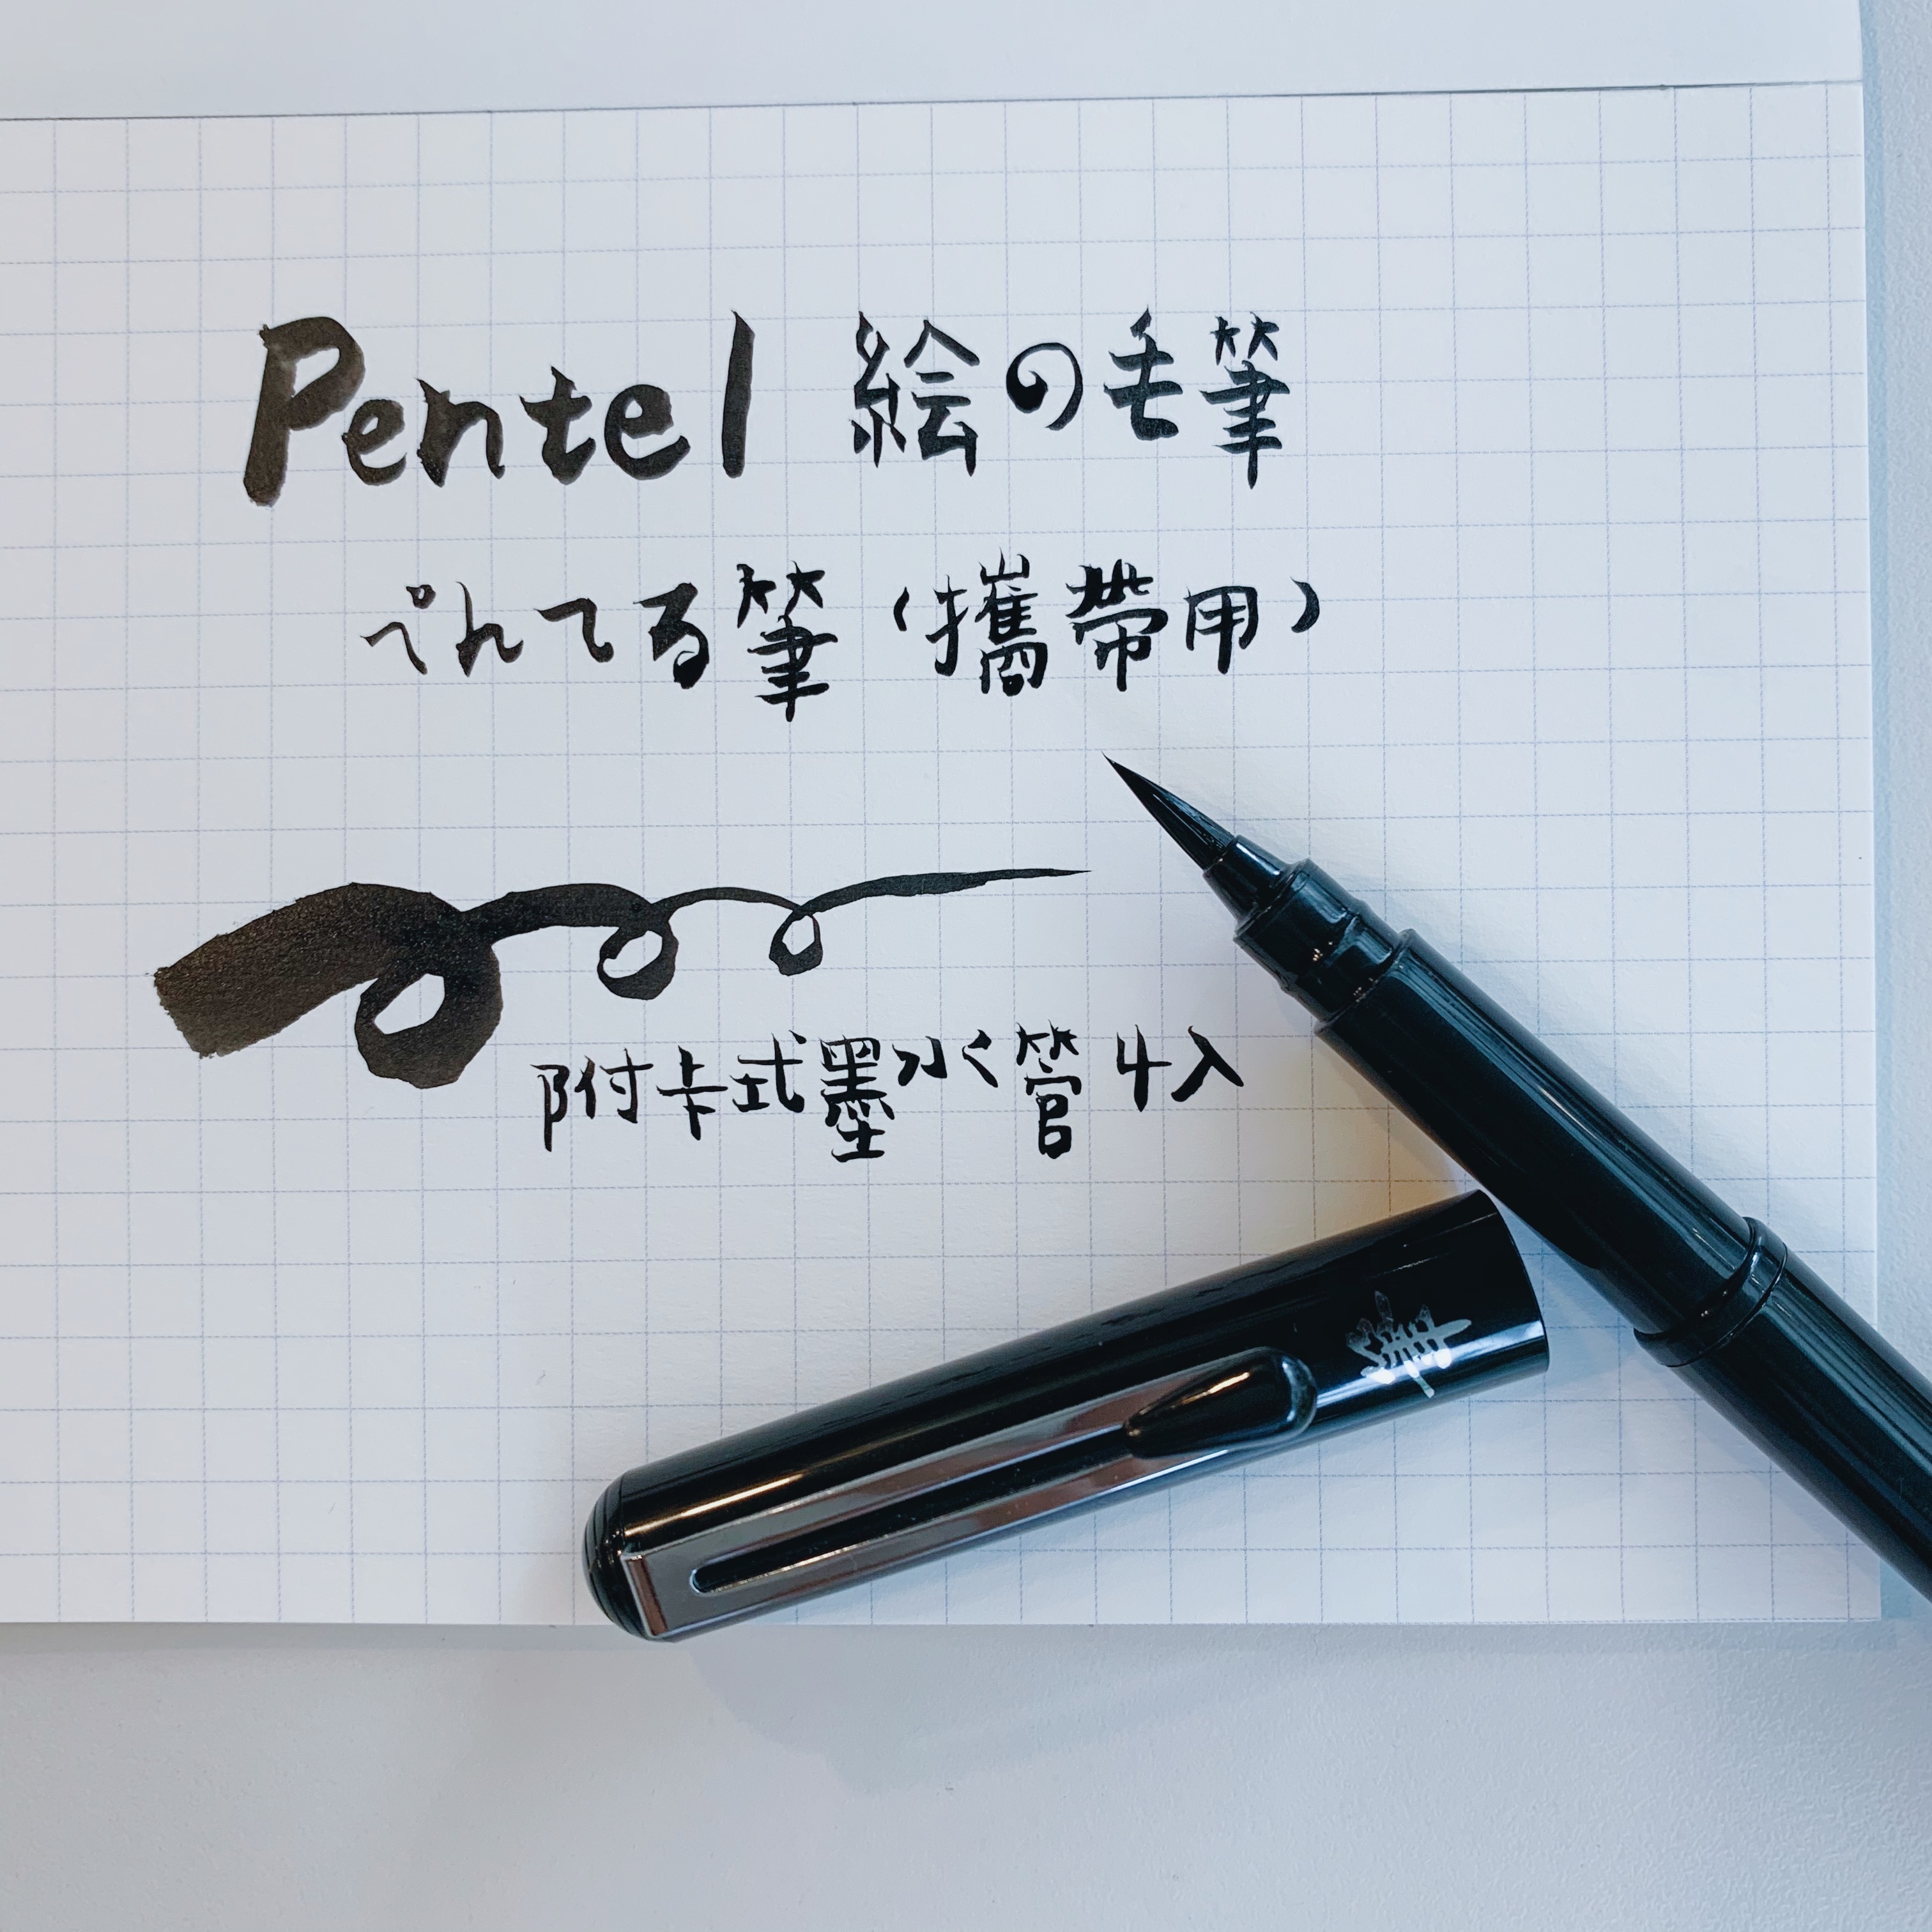 Pentel 絵の毛筆
ぺんてる筆(攜帶用)
附卡式墨水管4入
筆